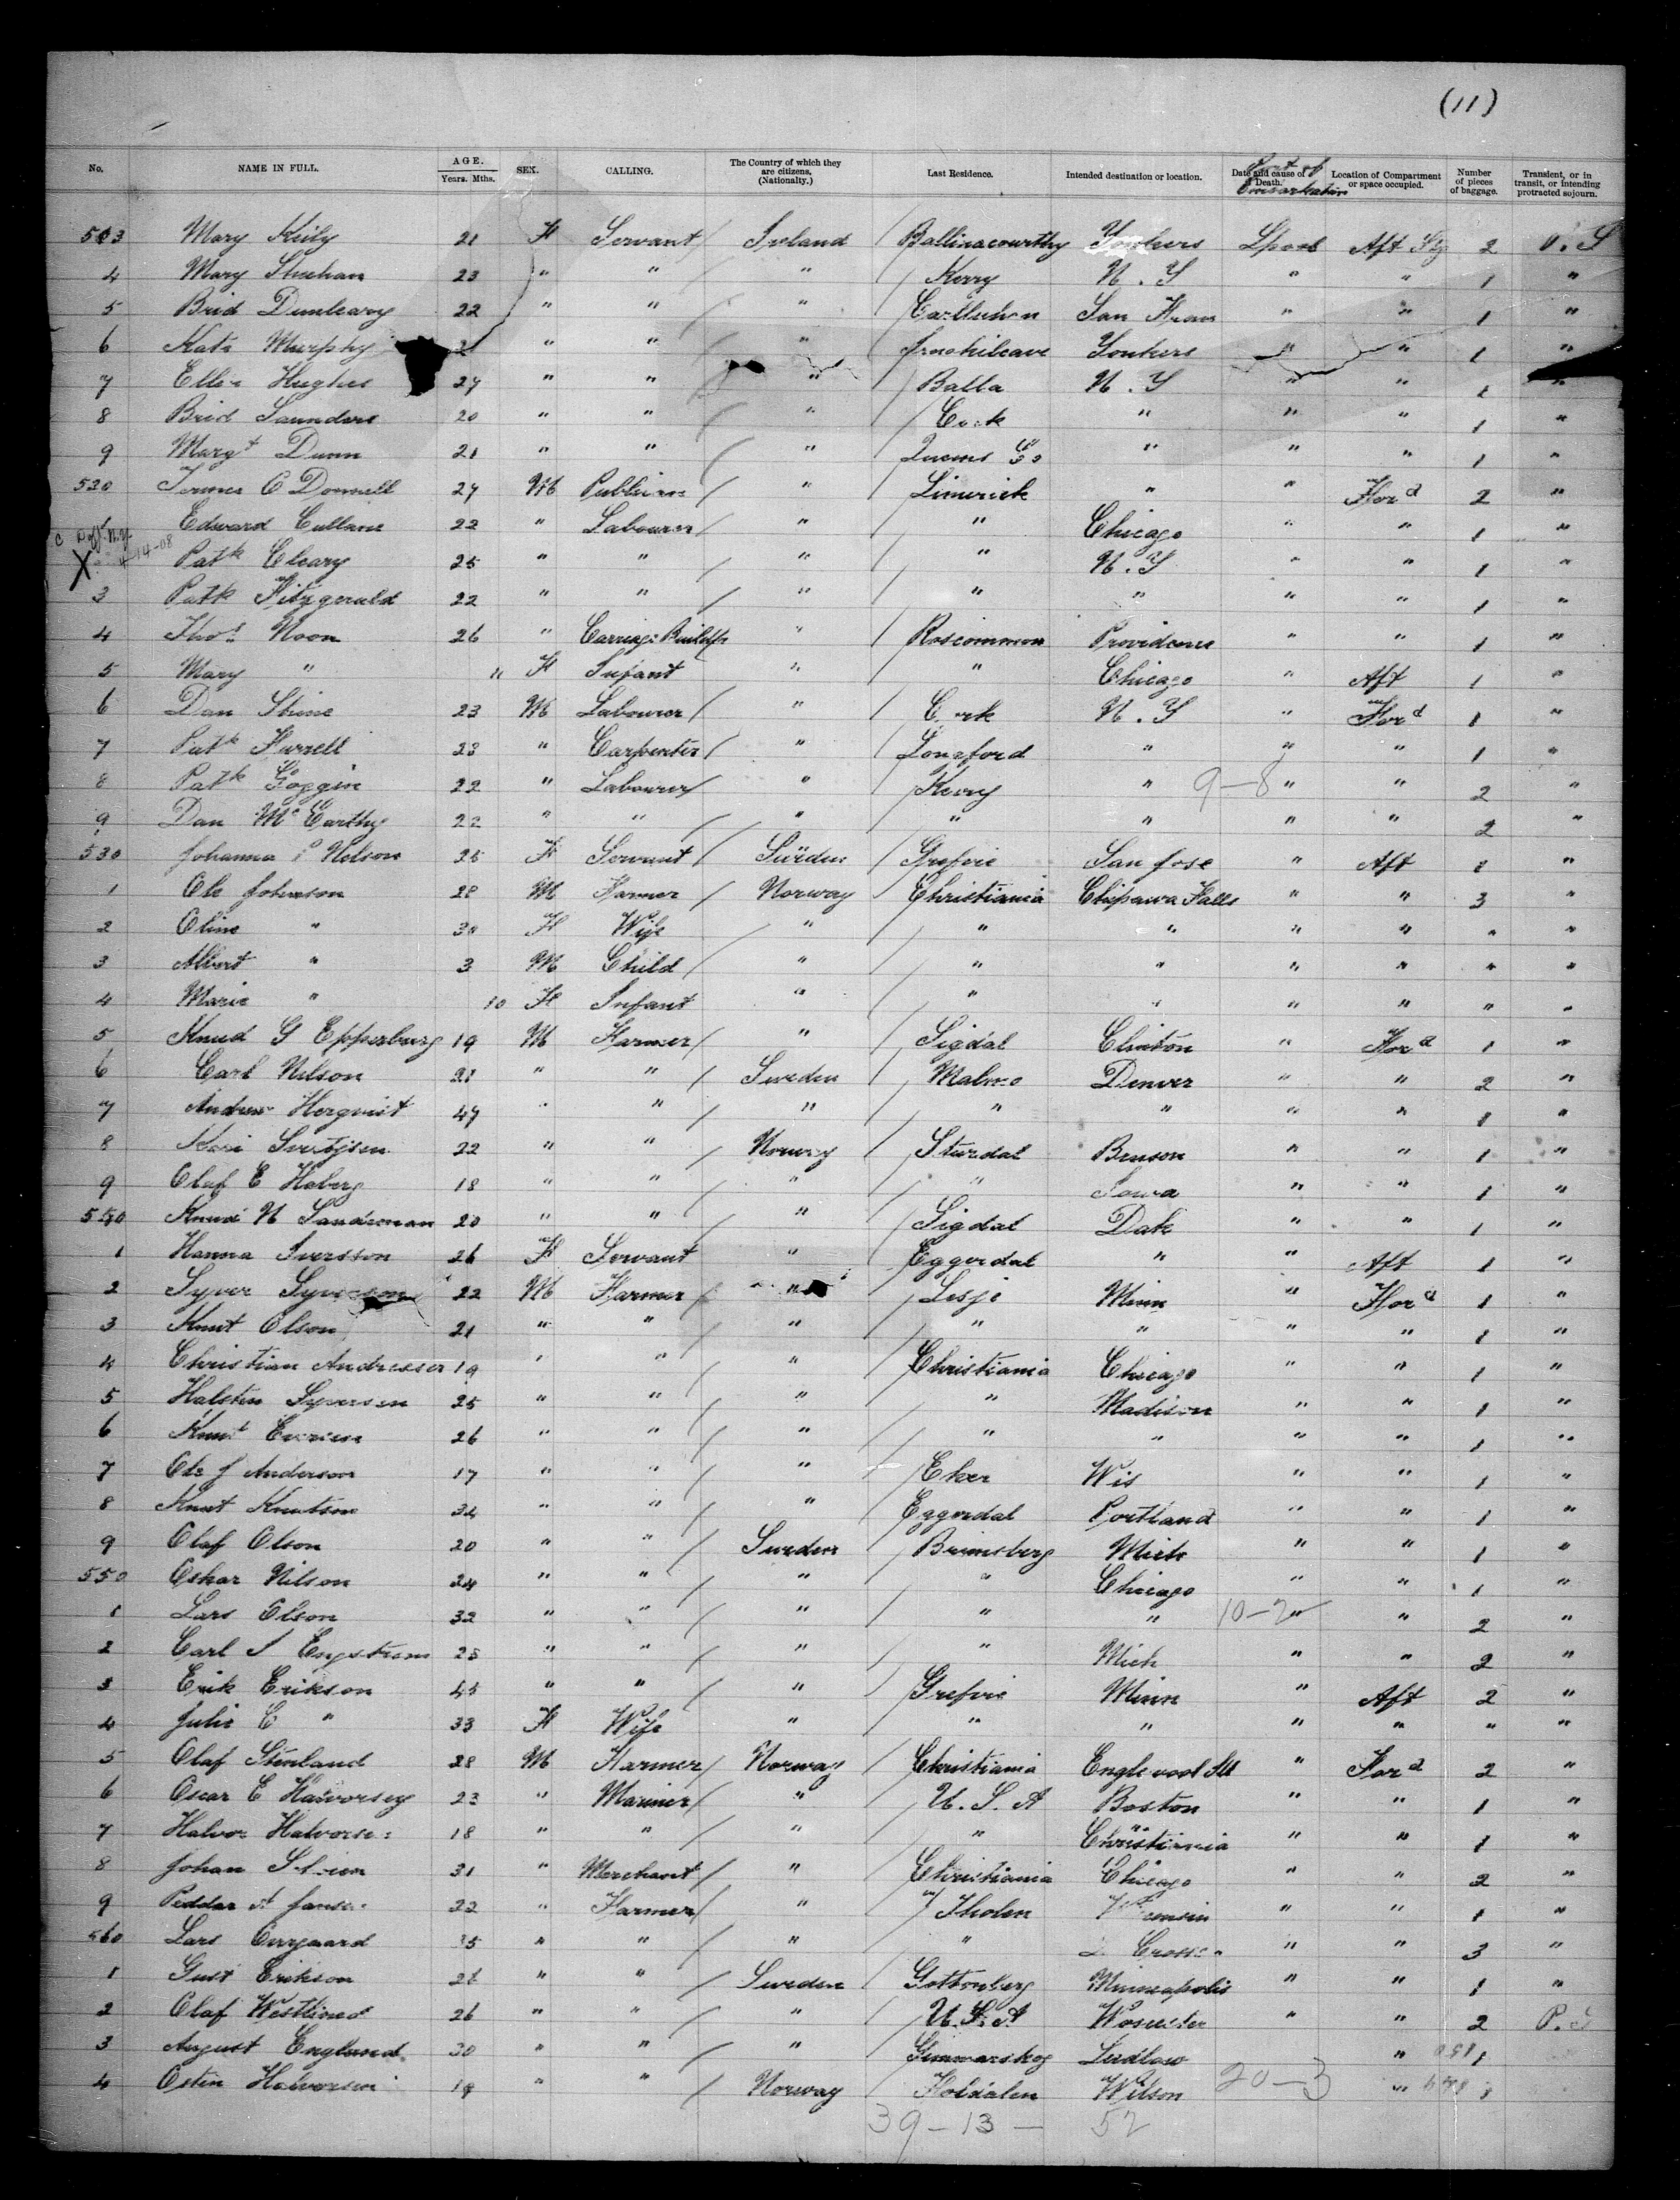 (11)
No. NAME IN FULL. AGE. Years. Mths. SEX. CALLING. The Country of which they are citizens. (Nationalty.) Last Residence. Intended destination or location. Date and cause of Death. Port of Embarkation Location of Compartment or space occupied. Number of pieces of baggage. Transient, or in transit, or intending protracted sojourn.
513 Mary Keily 21 F Servant Ireland Ballinacourthy Yonkers Lpool Aft Stg 2 P. S
4 Mary Sheehan 23 " " " Kerry N. Y " " 1 "
5 Brid Dunleavy 22 " " " San Fran " " 1 "
6 Kate Murphy " " " Yonkers " " 1 "
7 Ellen Hughes 27 " " " Balla N. Y " " 1 "
8 Brid Saunders 20 " " " Cork " " " 1 "
9 Margt Dunn 21 " " " Queens Co " " " 1 "
520 James O Donnell 27 M Publican " Limerick " " Ford 2 "
1 Edward Cullane 22 " Labourer " " Chicago " " 1 "
c N.Y. 4-14-08
X Patk Cleary 25 " " " " N. Y " " 1 "
3 Patk Fitzgerald 22 " " " " " " " 1 "
4 Thos Noon 26 " Carriage Buildr " Roscommon Providence " " 1 "
5 Mary " 11 F Infant " " Chicago " Aft 1 "
6 Dan Shine 23 M Labourer " Cork N. Y " Ford 1 "
7 Patk Farrell 23 " Carpenter " Longford " " " 1 "
8 Patk Goggin 22 " Labourer " Kerry " 9-8 " " 2 "
9 Dan McCarthy 22 " " " " " " " 2 "
530 Johanna P Nelson 25 F Servant Sweden Grefvie San Jose " Aft 1 "
1 Ole Johnson 28 M Farmer Norway Christiania Chipawa Falls " " 3 "
2 Oline " 30 F Wife " " " " " " "
3 Albert " 3 M Child " " " " " " "
4 Marie " 10 F Infant " " " " " " "
5 Knud G Epperburg 19 M Farmer " Sigdal Clinton " Ford 1 "
6 Carl Nilson 21 " " Sweden Malmo Denver " " 2 "
7 Andrew Herqvist 47 " " " " " " " 1 "
8 22 " " Norway Sturdal Benson " " 1 "
9 Olaf E Hoberg 18 " " " " Iowa " " 1 "
540 Knud N Sandsman 20 " " " Sigdal Dak " " 1 "
1 Hanna Iversson 26 F Servant " Eggerdal " " Aft 1 "
2 Syver Syverson 22 M Farmer " Lesje Minn " Ford 1 "
3 Knut Olson 21 " " " " " " " 1 "
4 Christian Andressen 19 " " " Christiania Chicago " " 1 "
5 Halsten Syversen 25 " " " " Madison " " 1 "
6 Knut 26 " " " " " " " 1 "
7 Ole J Anderson 17 " " " Eker Wis " " 1 "
8 Knut Knutson 34 " " " Eggerdal Portland " " 1 "
9 Olaf Olson 20 " " Sweden Brimsberg Mich " " 1 "
550 Oskar Nilson 24 " " " " Chicago " " 1 "
1 Lars Olson 32 " " " " " 10-2 " " 2 "
2 Carl S Engstrom 25 " " " " Mich " " 2 "
3 Erik Erikson 45 " " " Grefvie Minn " Aft 2 "
4 Julie C " 33 F Wife " " " " " " "
5 Olaf Stenland 28 M Farmer Norway Christiania Englewool Ill " Ford 2 "
6 Oscar E Halvorsey 23 " Mariner " U. S. A Boston " " 1 "
7 Halvor Halvorsen 18 " " " " Christiania " " 1 "
8 Johan 31 " Merchant " Christiania Chicago " " 2 "
9 Peddar A Jansen 22 " Farmer " Tholen " " 1 "
560 Lars 35 " " " " La Crosse " " 3 "
1 Gust Erikson 28 " " Sweden Gottenberg Minneapolis " " 1 "
2 Olaf Westlined 26 " " " U. S. A Worcester " " 2 P. S
3 August Englund 30 " " " Gunnarskog Ludlow " 1
4 Osten Halvorson 19 " " Norway Holdalen Wilson 20-3 " 1
39-13- 52